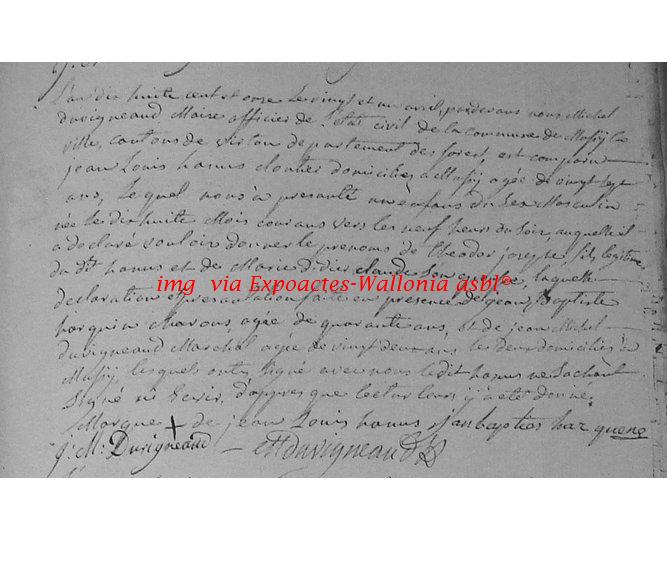 L'an dix huite cent et onze le vingt et un avril, pardevans nous Michel
duvigneaud Maire officier de l'état civil de la commune de Mussÿ la
ville, canton de virton departement des forest, est comparu
jean Louis hanus cloutier domicilies a Mussÿ agée de vingt sept
ans, Lequel nous à presanté un enfans du Sex Masculin
née le dix huite Mois courans vers les neuf heurs du Soir, auquelle il
a declaré vouloir donner le prenoms de theodor joseph, fils legitime
du dit hanus et de Marie didier claude Son epouse, laquelle
img via Expoactes-Wallonia asbl©
declaration et presantation faite en presence de jean Baptiste
harquin charons, agée de quarante ans, Et de jean Michel
duvigneaud Marchal agée de vingt deux ans les deux domiciliés à
Mussÿ, lesquels onts Signé avec nous ledit hanus ne Sachant
Signé ni Ecrir, d'apres que lectur leurs y a eté donné.
Marque + de jean Louis hanus jan bapties har quene
j. M. Duvigneaud — M duvigneaud